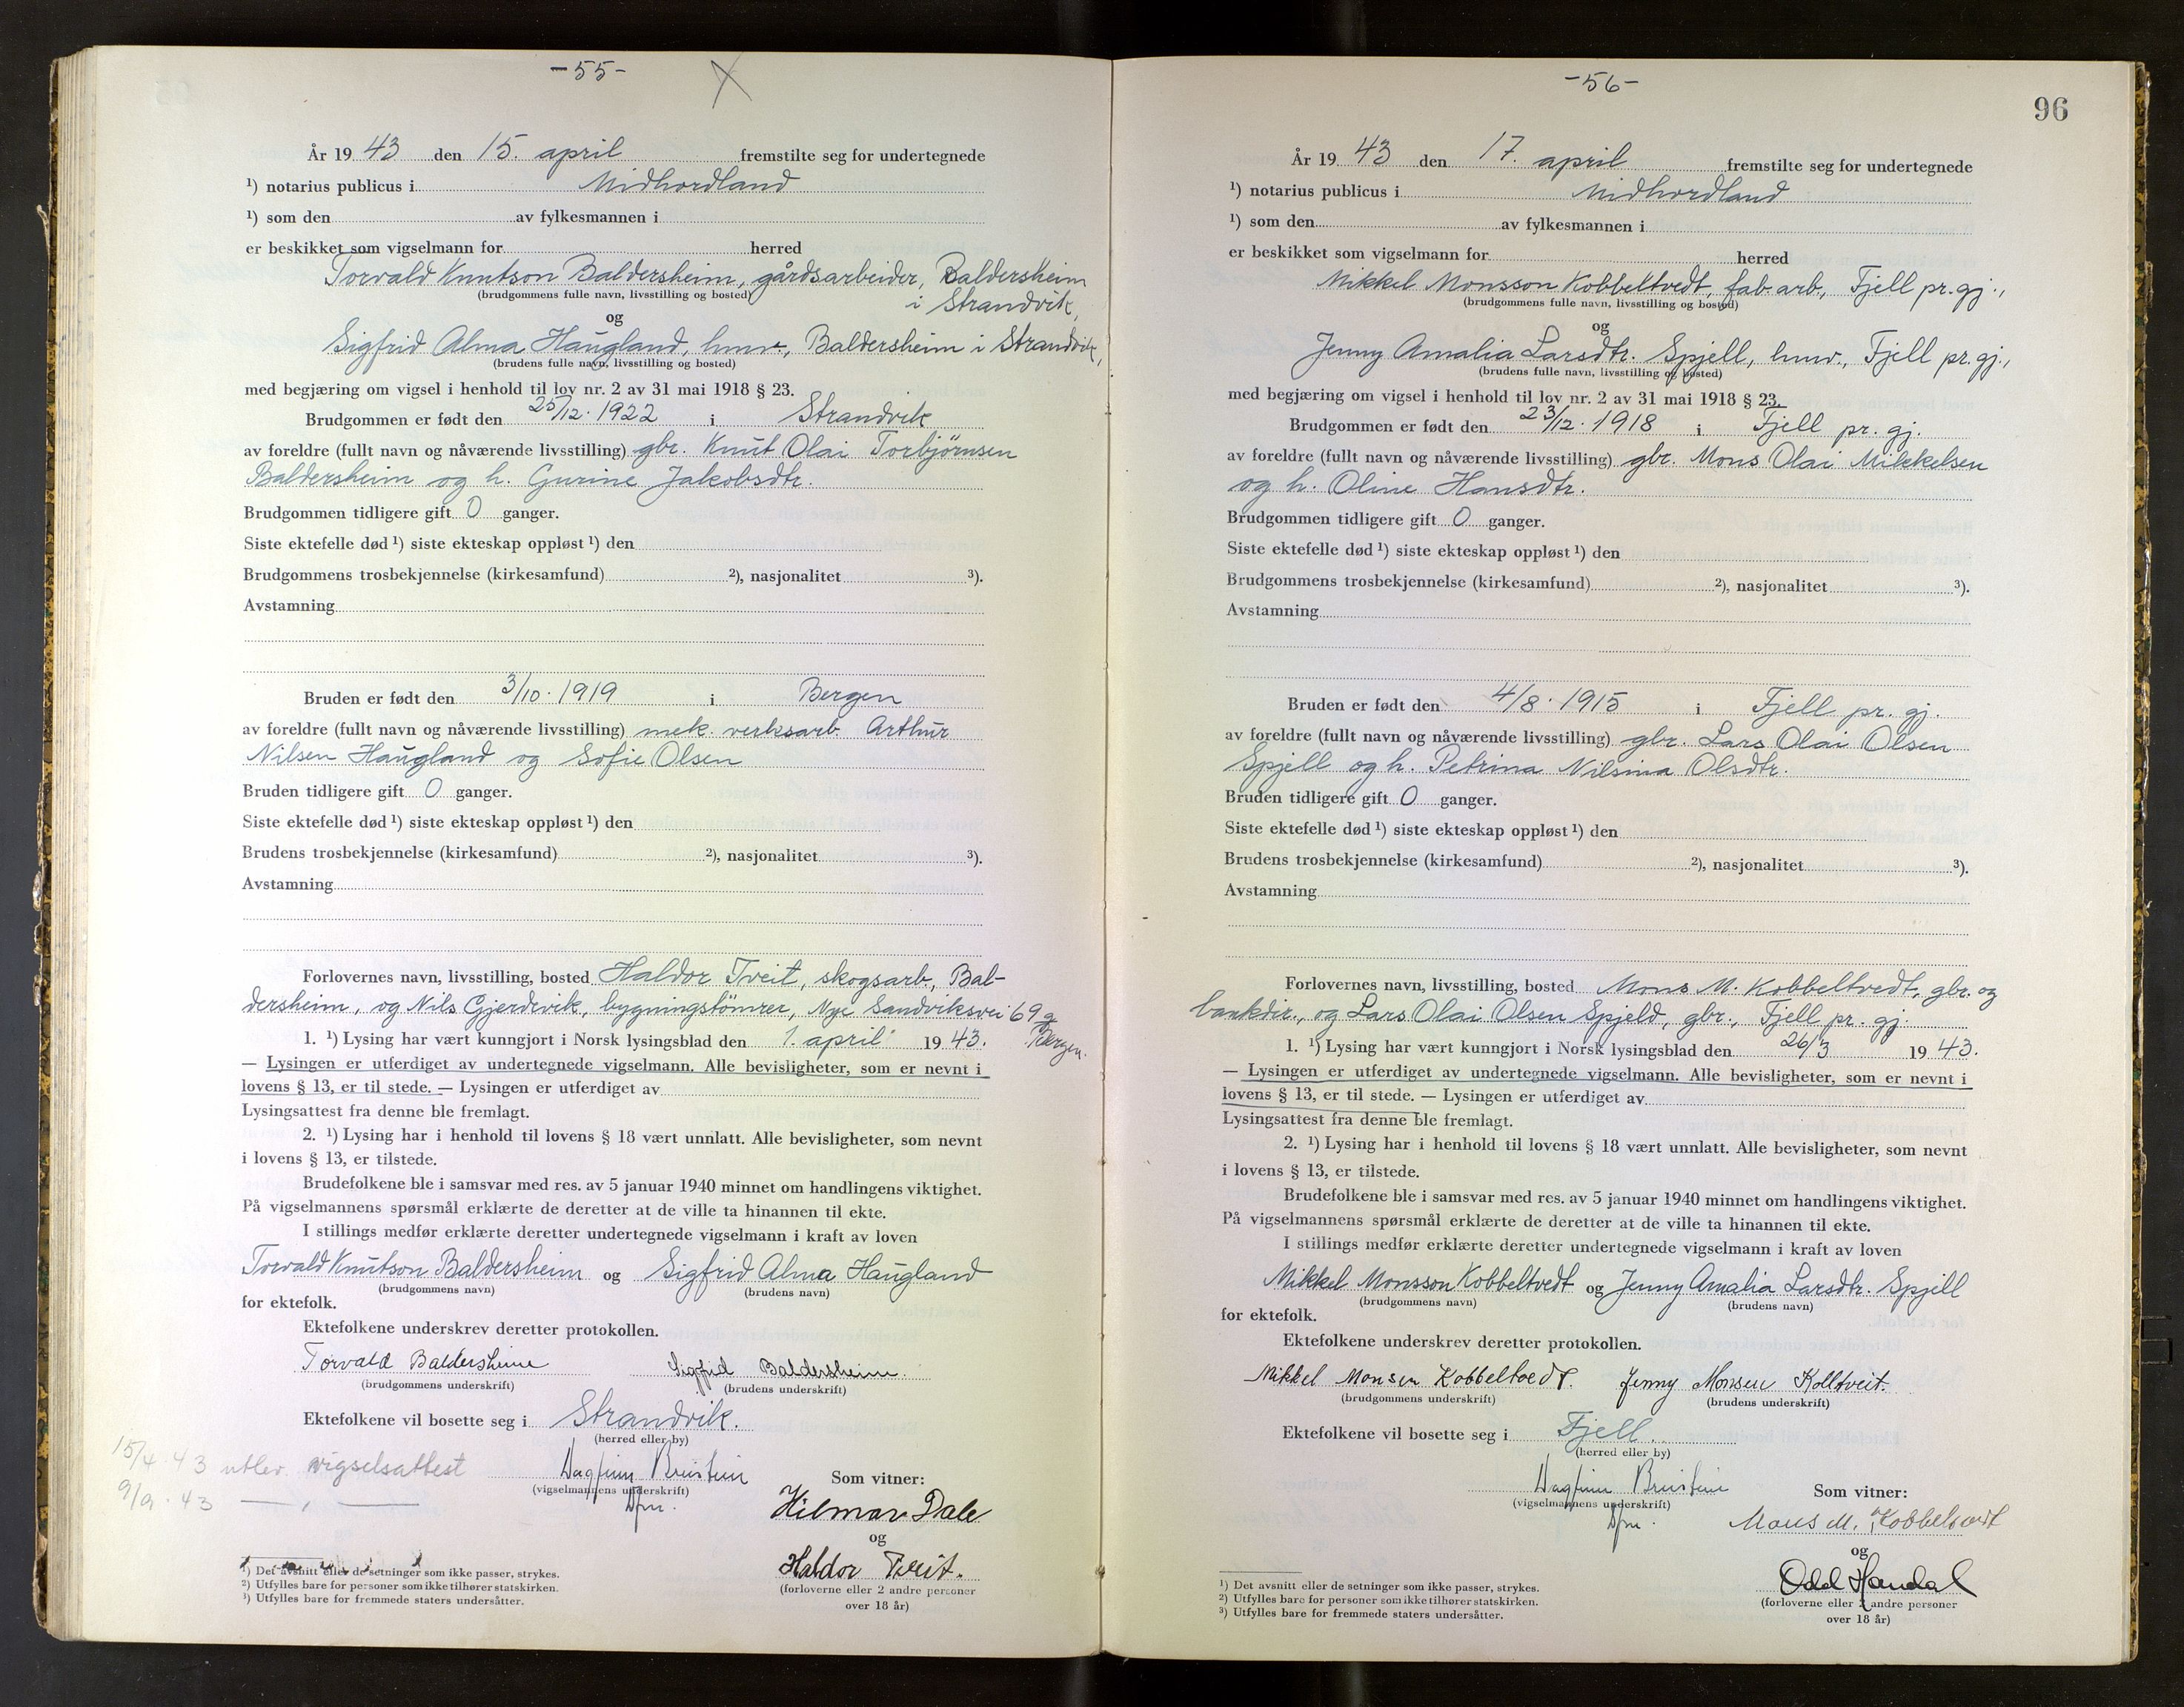 -55-
År 19 43 den 15. april fremstilte seg for undertegnede
¹) notarius publicus i Midhordland
¹) som den av fylkesmannen i
er beskikket som vigselmann for herred
Torvald Knutson Baldersheim, gårdsarbeider, Baldersheim
(brudgommens fulle navn, livsstilling og bosted)
i Strandvik,
og
Sigfrid Alma Haugland, hmv., Baldersheim i Strandvik,
(brudens fulle navn, livsstilling og bosted)
med begjæring om vigsel i henhold til lov nr. 2 av 31 mai 1918 § 23.
Brudgommen er født den 25/12. 1922 i Strandvik
av foreldre (fullt navn og nåværende livsstilling) gbr. Knut Olai Torbjørnsen
Baldersheim og h. Gurine Jakobsdtr.
Brudgommen tidligere gift 0 ganger.
Siste ektefelle død ¹) siste ekteskap oppløst ¹) den
Brudgommens trosbekjennelse (kirkesamfund) ²), nasjonalitet ³).
Avstamning
Bruden er født den 3/10. 1919 i Bergen
av foreldre (fullt navn og nåværende livsstilling) mek. verksarb. Arthur
Nilsen Haugland og Sofie Olsen
Bruden tidligere gift 0 ganger.
Siste ektefelle død ¹) siste ekteskap oppløst ¹) den
Brudens trosbekjennelse (kirkesamfund) ²), nasjonalitet ³).
Avstamning
Forlovernes navn, livsstilling, bosted Haldor Tveit, skogsarb., Bal-
dersheim, og Nils Gjerdevik, bygningstømrer, Nye Sandviksvei 69 g
Bergen.
1. ¹) Lysing har vært kunngjort i Norsk lysingsblad den 1. april 19 43.
— Lysingen er utferdiget av undertegnede vigselmann. Alle bevisligheter, som er nevnt i
lovens § 13, er til stede. — Lysingen er utferdiget av
Lysingsattest fra denne ble fremlagt.
2. ¹) Lysing har i henhold til lovens § 18 vært unnlatt. Alle bevisligheter, som nevnt
i lovens § 13, er tilstede.
Brudefolkene ble i samsvar med res. av 5 januar 1940 minnet om handlingens viktighet.
På vigselmannens spørsmål erklærte de deretter at de ville ta hinannen til ekte.
I stillings medfør erklærte deretter undertegnede vigselmann i kraft av loven
Torvald Knutson Baldersheim og Sigfrid Alma Haugland
(brudgommens navn) (brudens navn)
for ektefolk.
Ektefolkene underskrev deretter protokollen.
Torvald Baldersheim Sigfrid Baldersheim.
(brudgommens underskrift) (brudens underskrift)
Ektefolkene vil bosette seg i Strandvik.
(herred eller by)
15/4 43 utlev. vigselsattest
9/9. 43 — , —
Dagfinn Breistein
(vigselmannens underskrift)
Dfm.
Som vitner:
Hilmar Dale
og
Haldor Tveit.
(forloverne eller 2 andre personer
over 18 år)
¹) Det avsnitt eller de setninger som ikke passer, strykes.
²) Utfylles bare for personer som ikke tilhører statskirken.
³) Utfylles bare for fremmede staters undersåtter.
-56-
96
År 19 43 den 17. april fremstilte seg for undertegnede
¹) notarius publicus i Midhordland
¹) som den av fylkesmannen i
er beskikket som vigselmann for herred
Mikkel Monsson Kobbeltvedt, fab.arb., Fjell pr.gj.,
(brudgommens fulle navn, livsstilling og bosted)
og
Jenny Amalia Larsdtr. Spjell, hmv., Fjell pr.gj.,
(brudens fulle navn, livsstilling og bosted)
med begjæring om vigsel i henhold til lov nr. 2 av 31 mai 1918 § 23.
Brudgommen er født den 23/12. 1918 i Fjell pr. gj.
av foreldre (fullt navn og nåværende livsstilling) gbr. Mons Olai Mikkelsen
og h. Oline Hansdtr.
Brudgommen tidligere gift 0 ganger.
Siste ektefelle død ¹) siste ekteskap oppløst ¹) den
Brudgommens trosbekjennelse (kirkesamfund) ²), nasjonalitet ³).
Avstamning
Bruden er født den 4/8. 1915 i Fjell pr. gj.
av foreldre (fullt navn og nåværende livsstilling) gbr. Lars Olai Olsen
Spjell og h. Petrina Nilsina Olsdtr.
Bruden tidligere gift 0 ganger.
Siste ektefelle død ¹) siste ekteskap oppløst ¹) den
Brudens trosbekjennelse (kirkesamfund) ²), nasjonalitet ³).
Avstamning
Forlovernes navn, livsstilling, bosted Mons M. Kobbeltvedt, gbr. og
bankdir., og Lars Olai Olsen Spjeld, gbr., Fjell pr. gj.
1. ¹) Lysing har vært kunngjort i Norsk lysingsblad den 26/3 19 43.
— Lysingen er utferdiget av undertegnede vigselmann. Alle bevisligheter, som er nevnt i
lovens § 13, er til stede. — Lysingen er utferdiget av
Lysingsattest fra denne ble fremlagt.
2. ¹) Lysing har i henhold til lovens § 18 vært unnlatt. Alle bevisligheter, som nevnt
i lovens § 13, er tilstede.
Brudefolkene ble i samsvar med res. av 5 januar 1940 minnet om handlingens viktighet.
På vigselmannens spørsmål erklærte de deretter at de ville ta hinannen til ekte.
I stillings medfør erklærte deretter undertegnede vigselmann i kraft av loven
Mikkel Monsson Kobbeltvedt og Jenny Amalia Larsdtr. Spjell
(brudgommens navn) (brudens navn)
for ektefolk.
Ektefolkene underskrev deretter protokollen.
Mikkel Monsen Kobbeltvedt. Jenny Monsen Kolltveit.
(brudgommens underskrift) (brudens underskrift)
Ektefolkene vil bosette seg i Fjell.
(herred eller by)
Dagfinn Breistein
(vigselmannens underskrift)
Dfm.
Som vitner:
Mons M. Kobbeltvedt
og
Odd Handal
(forloverne eller 2 andre personer
over 18 år)
¹) Det avsnitt eller de setninger som ikke passer, strykes.
²) Utfylles bare for personer som ikke tilhører statskirken.
³) Utfylles bare for fremmede staters undersåtter.